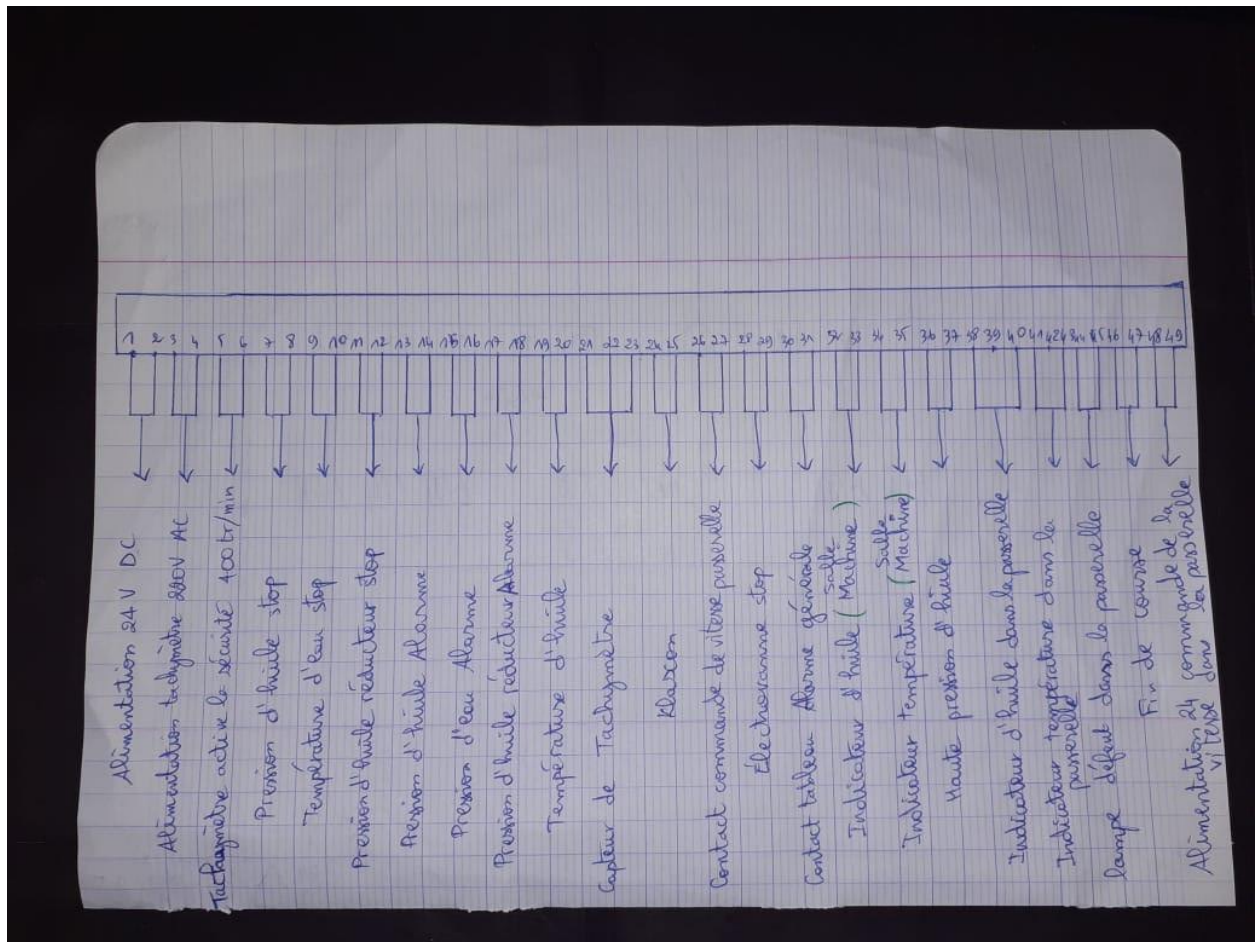 1 2 3 4 5 6 7 8 9 10 11 12 13 14 15 16 17 18 19 20 21 22 23 24 25 26 27 28 29 30 31 32 33 34 35 36 37 38 39 40 41 42 43 44 45 46 47 48 49
Alimentation 24 V DC
Alimentation tachymètre 220V AC
Tachymètre active la sécurité 400 tr/min
Pression d'huile stop
Température d'eau stop
Pression d'huile réducteur stop
Pression d'huile Alarme
Pression d'eau Alarme
Pression d'huile réducteur Alarme
Température d'huile
Capteur de Tachymètre
Klaxon
Contact commande de vitesse passerelle
Électrovanne stop
Contact tableau Alarme générale
Indicateur d'huile ( Salle
Machine )
Indicateur température ( Salle
Machine)
Haute pression d'huile
Indicateur d'huile dans la passerelle
Indicateur température dans la
passerelle
lampe défaut dans la passerelle
Fin de course
Alimentation 24 commande de la
vitesse dans la passerelle